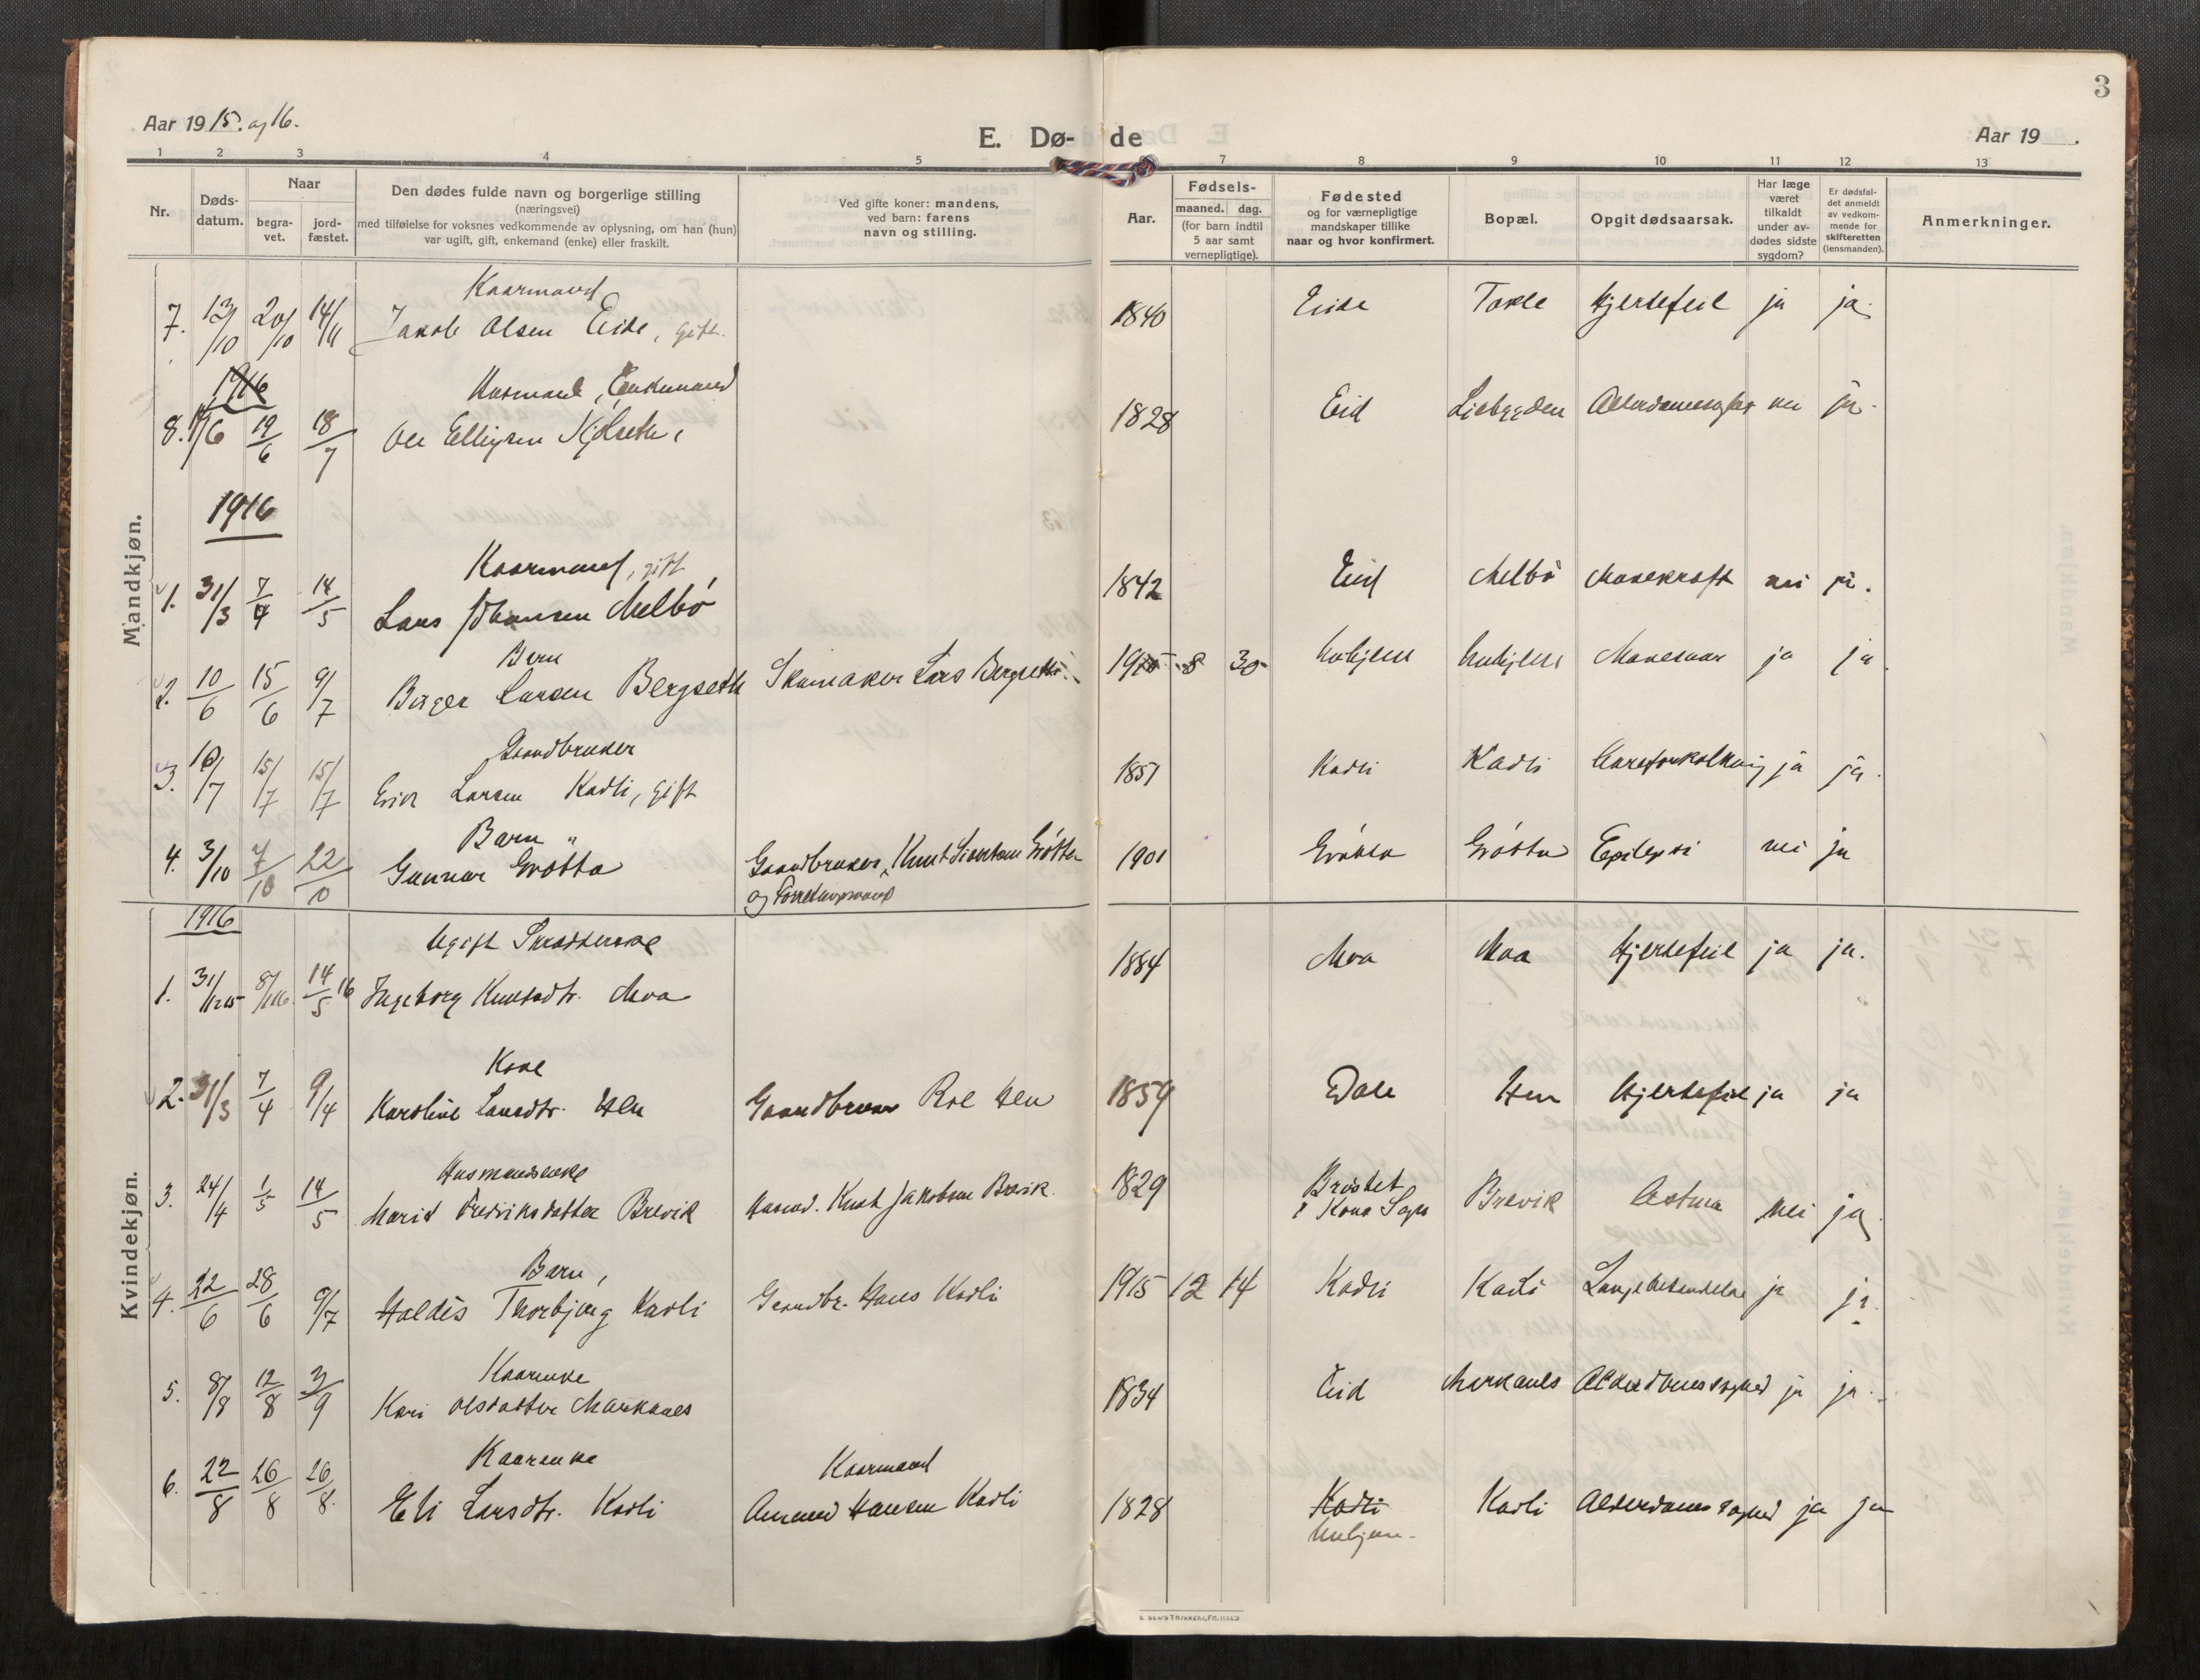 3
Aar 1915. og 16.
E. Dø- de
Aar 19 .
1 2 3 4 5 7 8 9 10 11 12 13
Nr.
Døds-
datum.
Naar
begra-
vet.
jord-
fæstet.
Den dødes fulde navn og borgerlige stilling
(næringsvei)
med tilføielse for voksnes vedkommende av oplysning, om han (hun)
var ugift, gift, enkemand (enke) eller fraskilt.
Ved gifte koner: mandens,
ved barn: farens
navn og stilling.
Aar.
Fødsels-
maaned. dag.
(for barn indtil
5 aar samt
vernepligtige).
Fødested
og for værnepligtige
mandskaper tillike
naar og hvor konfirmert.
Bopæl.
Opgit dødsaarsak.
Har læge
været
tilkaldt
under av-
dødes sidste
sygdom?
Er dødsfal-
det anmeldt
av vedkom-
mende for
skifteretten
(lensmanden).
Anmerkninger.
Mandkjøn.
Kaarmand
7. 13/10 20/10 14/11 Jakob Olsen Eide, gift. 1840 Eide Tokle Hjertefeil ja ja.
1916
Husmand, Enkemand
8. 6 19/6 18/7 Ole 1828 Eid Liabygden nei ja.
1916
Kaarmand, gift
1. 31/3 7/4 14/5 Lars Johansen Melbö 1842 Eid Melbö Mavekræft nei ja.
Barn
2. 10/6 15/6 9/7 Birger Larsen Bergseth Skomaker Lars Bergseth. 19 8 30 ja ja.
Gaardbruker
3. 10/7 15/7 15/7 Erik Larsen Kadli, gift 1851 Kadli Kadli Aareforkalkning ja ja.
Barn "
4. 3/10 7/10 22/10 Gunnar Grøtta Gaardbruker, Knut Sivertsen Grøtta 1901 Grøtta Grøtta Epilepsi nei ja
og
Kvindekjøn.
1916
Ugift
1. 31/12 15 8/1 16. 14/5 16 Ingeborg Knutsdtr. Moa 1884 Moa Moa Hjertefeil ja ja.
Kone
2. 31/3 7/4 9/4 Karoline Larsdtr. Hen Gaardbruker Roe Hen 1859 Dale Hen Hjertefeil ja ja
Husmandsenke
3. 24/4 1/5 14/5 Marit Fredriksdatter Brevik Husmd. Knut Jakobsen Brevik. 1829 Brøstet Brevik Astma nei ja.
i Kors Sogn
Barn,
4. 22/6 28/6 9/7 Haldis Thorbjørg Kadli Gaardbr. Hans Kadli 1915 12 14 Kadli Kadli Lungebetændelse ja ja.
Kaarenke
5. 8/8 12/8 3/9 Kari Olsdatter Markanes 1834 Eid Markanes Alderdomssvaghed ja ja.
Kaarenke Kaarmand
6. 22/8 26/8 26/8. Eli Larsdtr. Kadli Amund Hansen Kadli 1828 Kadli Kadli Alderdomssvaghed ja ja